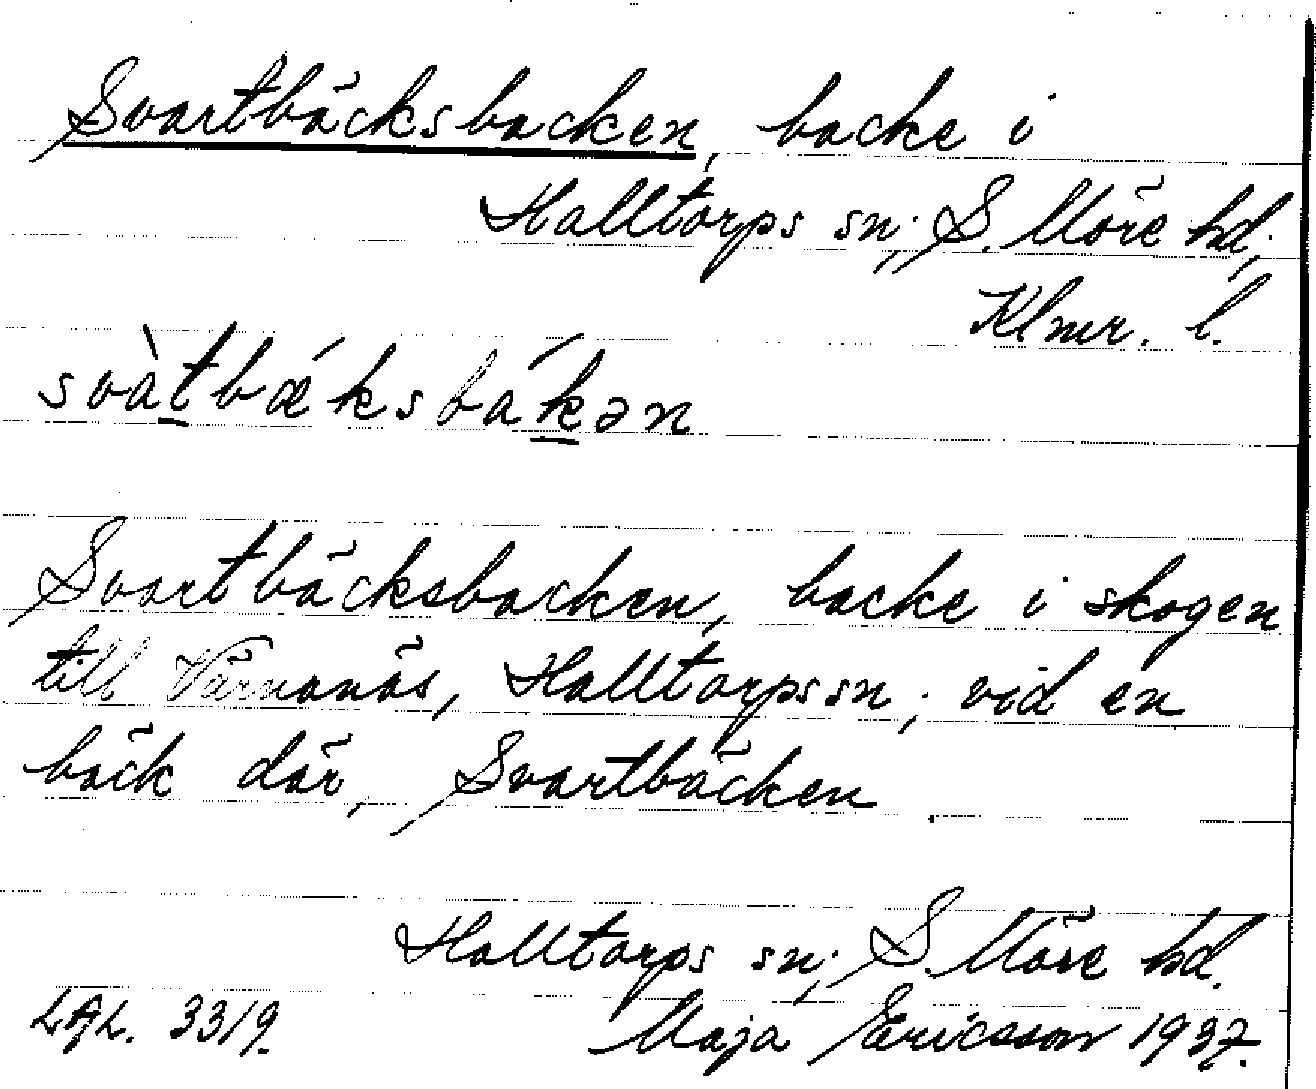 Svartbäcksbacken, backe i
Halltorps sn; S. Möre hd;
Klmr. l.
svàtbǽksbákən
Svartbäcksbacken, backe i skogen
till Värnanäs, Halltorps sn; vid en
bäck där, Svartbäcken.
Halltorps sn; S. Möre hd.
LAL. 3319. Maja Ericsson 1937.